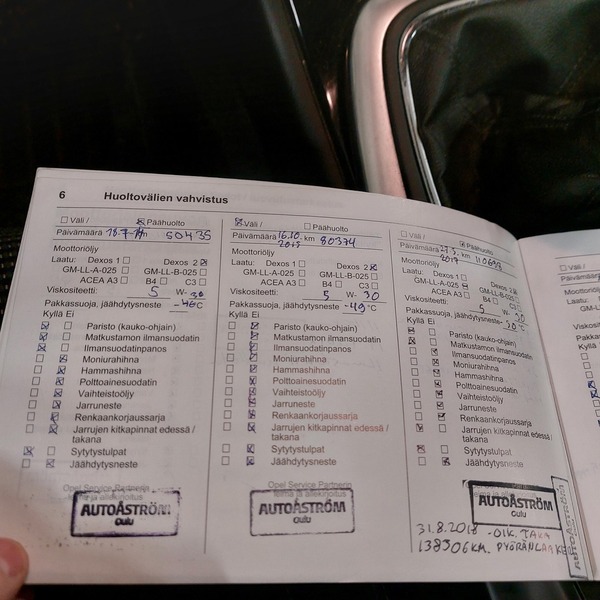 6 Huoltovälien vahvistus
Väli / Päähuolto
Päivämäärä km
Moottoriöljy
Laatu: Dexos 1 Dexos 2
GM-LL-A-025 GM-LL-B-025
ACEA A3 B4 C3
Viskositeetti: 5 W- 30
Pakkassuoja, jäähdytysneste
Kyllä Ei
Paristo (kauko-ohjain)
Matkustamon ilmansuodatin
Ilmansuodatinpanos
Moniurahihna
Hammashihna
Polttoainesuodatin
Vaihteistoöljy
Jarruneste
Renkaankorjaussarja
Jarrujen kitkapinnat edessä /
takana
Sytytystulpat
Jäähdytysneste
Opel Service Partnerin
AUTOÅSTRÖM
OULU
Väli / Päähuolto
Päivämäärä 16.10. km 80374
2015
Moottoriöljy
Laatu: Dexos 1 Dexos 2
GM-LL-A-025 GM-LL-B-025
ACEA A3 B4 C3
Viskositeetti: 5 W- 30
Pakkassuoja, jäähdytysneste -49 °C
Kyllä Ei
Paristo (kauko-ohjain)
Matkustamon ilmansuodatin
Ilmansuodatinpanos
Moniurahihna
Hammashihna
Polttoainesuodatin
Vaihteistoöljy
Jarruneste
Renkaankorjaussarja
Jarrujen kitkapinnat edessä /
takana
Sytytystulpat
Jäähdytysneste
Opel Service Partnerin
leima ja allekirjoitus
AUTOÅSTRÖM
OULU
Väli / Päähuolto
Päivämäärä km
2017
Moottoriöljy
Laatu: Dexos 1 Dexos 2
GM-LL-A-025 GM-LL-B-025
ACEA A3 B4 C3
Viskositeetti: 5 W- 30
Pakkassuoja, jäähdytysneste
Kyllä Ei
Paristo (kauko-ohjain)
Matkustamon ilmansuodatin
Ilmansuodatinpanos
Moniurahihna
Hammashihna
Polttoainesuodatin
Vaihteistoöljy
Jarruneste
Renkaankorjaussarja
Jarrujen kitkapinnat edessä /
takana
Sytytystulpat
Jäähdytysneste
Opel Service Partnerin
AUTOÅSTRÖM
OULU
31.8.2018 -OIK. TAKA
138306KM.
Väli /
Moottoriöljy
Laatu:
Kyllä